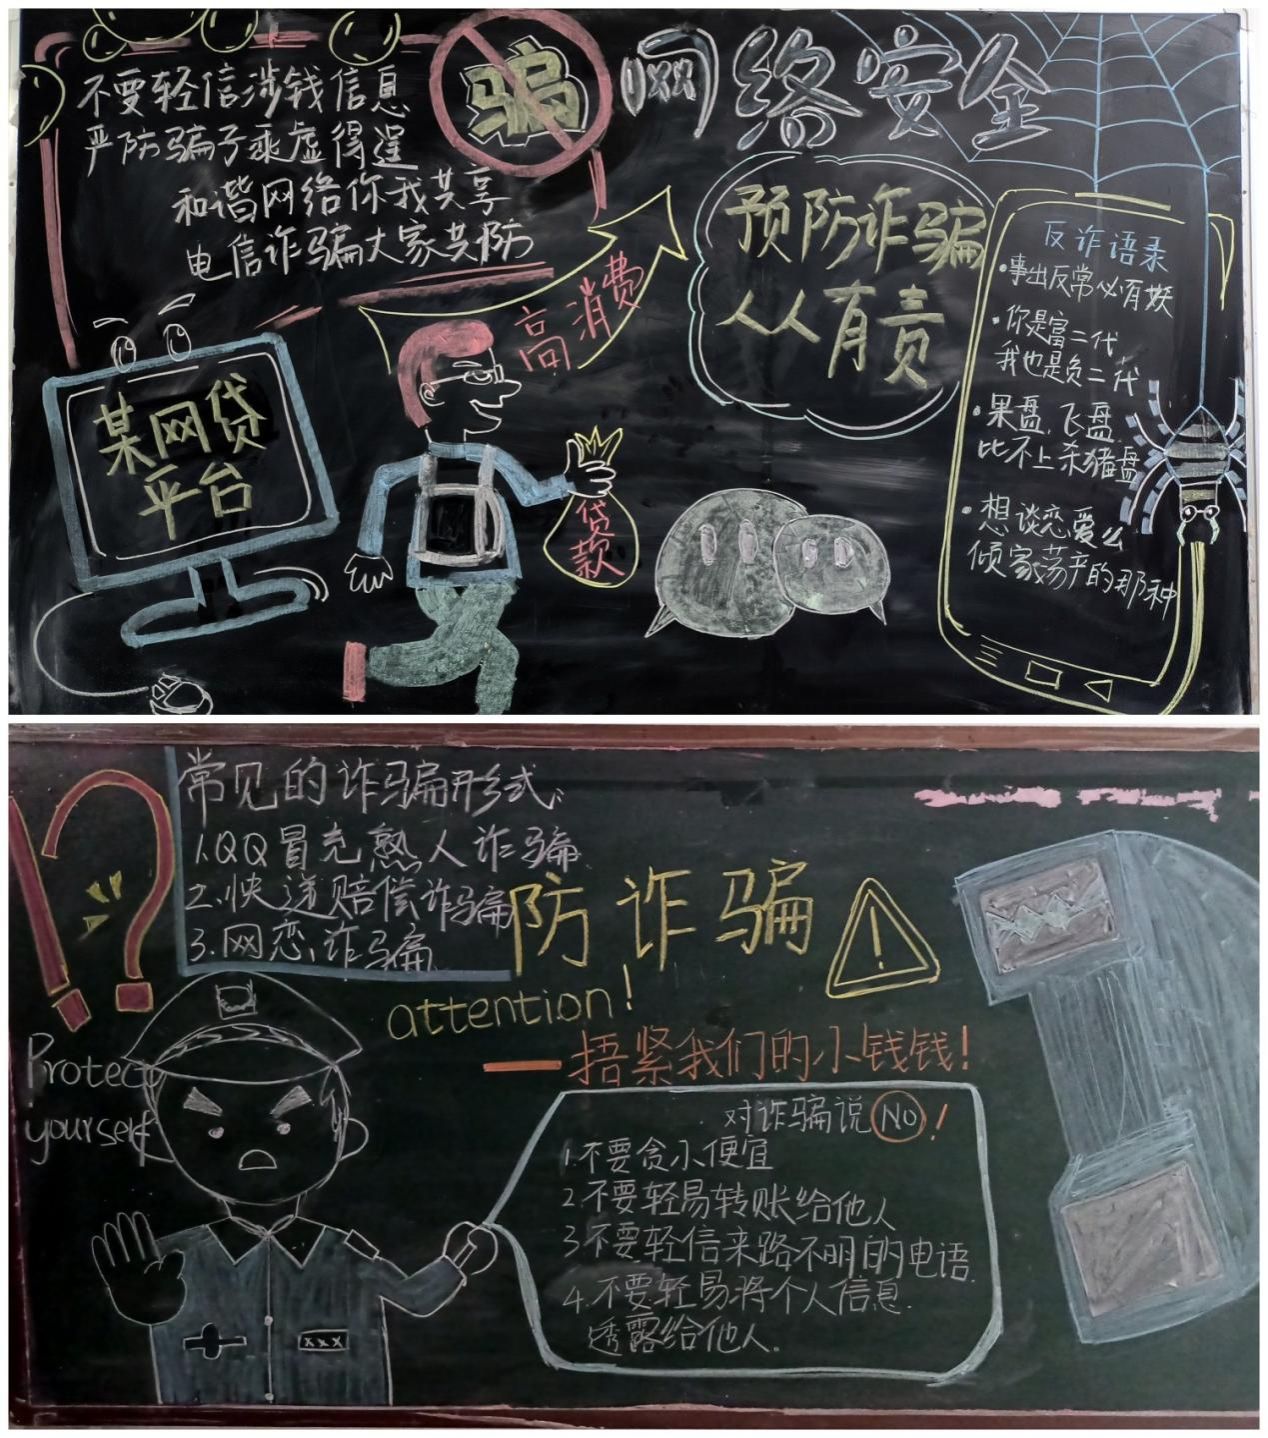 不要轻信涉钱信息
严防骗子乘虚得逞
和谐网络你我共享
电信诈骗大家共防
骗
网络安全
预防诈骗
人人有责
高消费
某网贷
平台
贷
款
反诈语录
·事出反常必有妖
·你是富二代
我也是负二代
·果盘,飞盘,
比不上杀猪盘
·想谈恋爱么
倾家荡产的那种
常见的诈骗形式:
1.QQ冒充熟人诈骗
2.快递赔偿诈骗
3.网恋诈骗
防诈骗
attention!
—捂紧我们的小钱钱!
Protect
yourself
对诈骗说NO!
1.不要贪小便宜
2.不要轻易转账给他人
3.不要轻信来路不明的电话.
4.不要轻易将个人信息.
透露给他人。
xxx